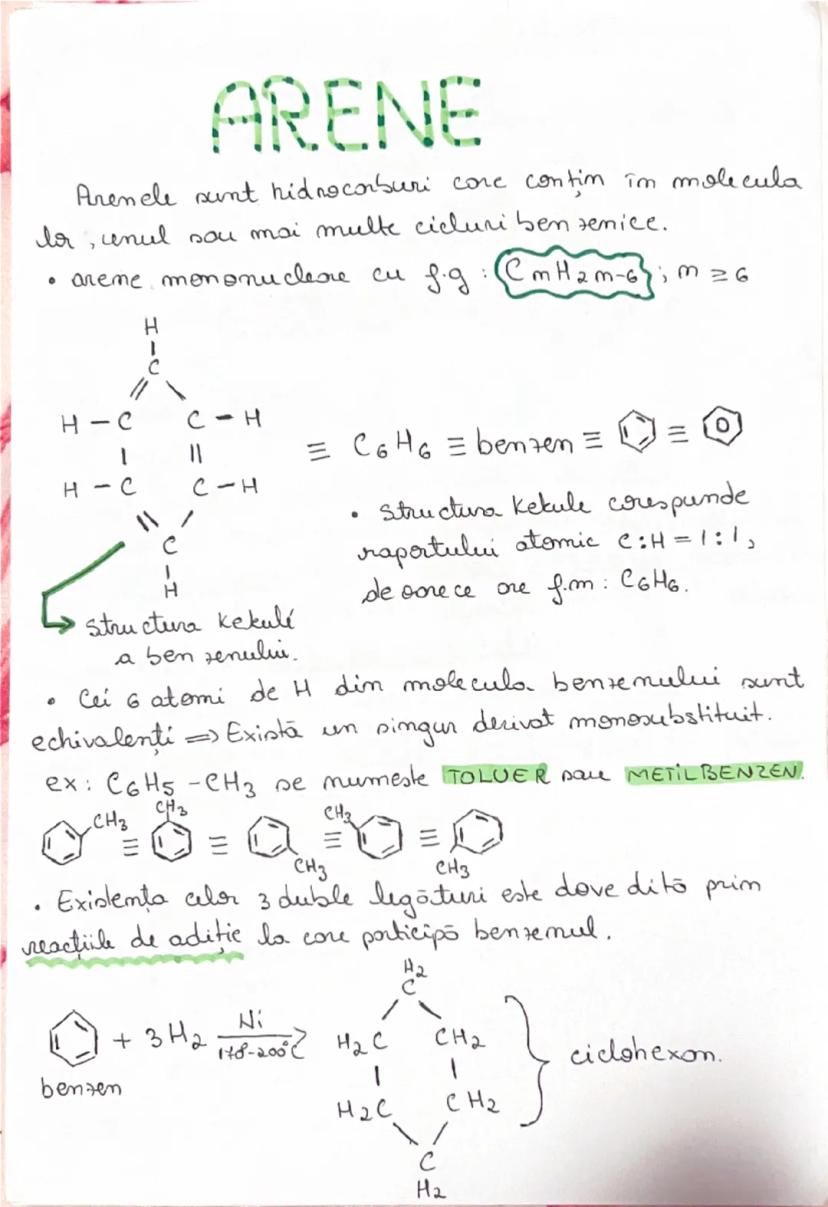 ARENE
Arenele sunt hidrocarburi care conțin în molecula
lor, unul sau mai multe cicluri benzenice.
• arene mononucleare cu f.g : CnH2n-6 ; n ≥ 6
H
C
H - C C - H
≡ C6H6 ≡ benzen ≡ ≡
H - C C - H
C
H
• Structura Kekule corespunde
raportului atomic C:H = 1:1,
deoarece are f.m : C6H6.
Structura Kekulé
a benzenului.
• Cei 6 atomi de H din molecula benzenului sunt
echivalenți => Există un singur derivat monosubstituit.
ex: C6H5 - CH3 se numeste TOLUER sau METILBENZEN.
CH3 ≡ CH3 ≡ CH3 ≡ CH3 ≡ CH3
• Existența celor 3 duble legături este dovedită prin
reacțiile de adiție la care participă benzenul.
+ 3H2 Ni 178-200°C
benzen
H2
C
H2C CH2
H2C CH2
C
H2
ciclohexan.